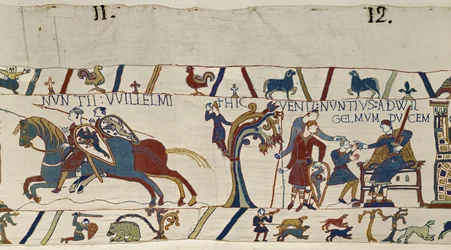 11.
12.
NVNTII : VVILLELMI
+ HIC VENIT : NVNTIVS : AD WIL
GELMVM DVCEM